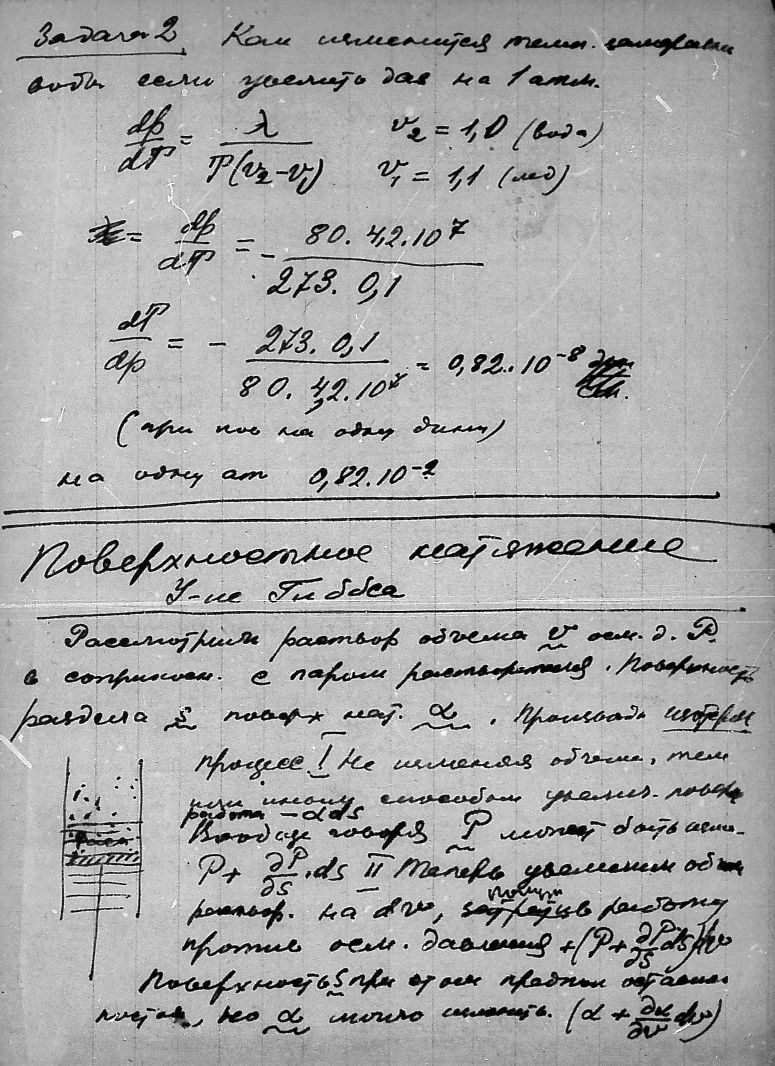 Задача 2. Как изменится темп. замерзания
воды если увелить дав на 1 атм.
dp/dT = λ/T(v₂-v₁) v₂ = 1,0 (вода)
v₁ = 1,1 (лед)
= dp/dT = - 80. 4,2. 10⁷/273. 0,1
dT/dp = - 273. 0,1/80. 4,2. 10⁷ = 0,82. 10⁻⁸
(при пов на одну дину)
на одну ат 0,82. 10⁻²
Поверхностное натяжение
У-ие Гиббса
Рассмотрим раствор объема v осм. д. P.
в соприкосн. с паром растворителя. Поверхность
раздела s поверх нат. α. Производя изотерм
процесс I Не изменяя объема, тем
или иным способом увелич. поверх
работа -αds
Вообще говоря P может быть изме-
P + ∂P/∂s .ds II Теперь увеличим объем
раствор. на dv, работу
против осм. давления +(P + ∂P/∂s ds)dv
Поверхность s при этом предпол остается
постоя., но α может измен. (α + ∂α/∂v dv)